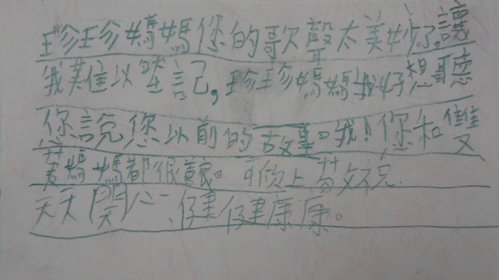 珍珍媽媽您的歌聲太美妙了,讓
我難以忘記,珍珍媽媽我好想聽
你說您以前的故事。我!你和雙
媽媽都很親。可欣上 敬祝
天天開心、健健康康。